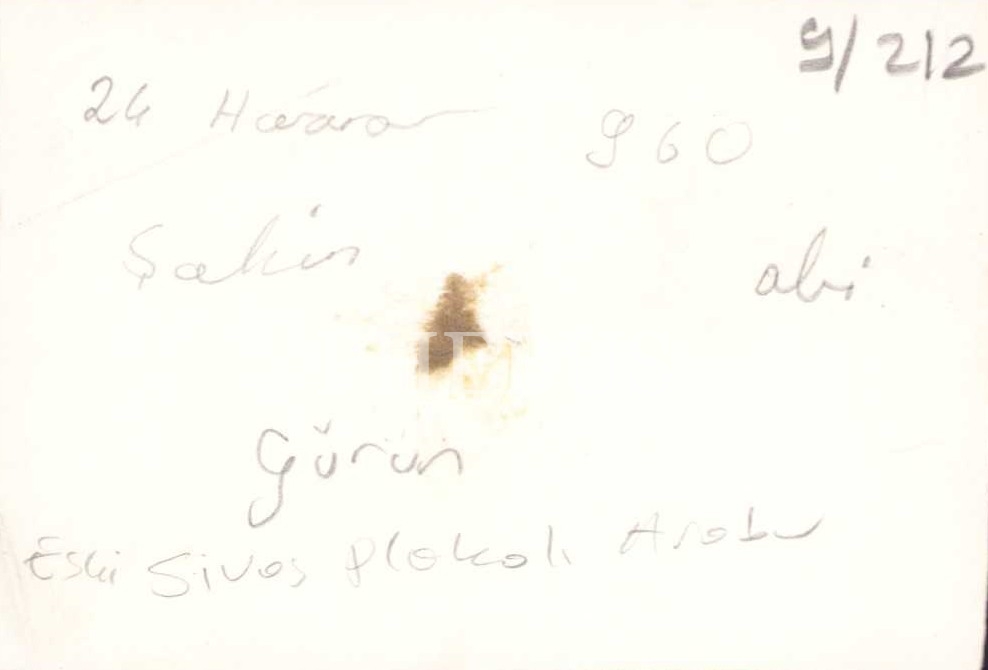 9/212
26 Haziran 960
Şakir abi
Gürün
Eski Sivas Plakalı Araba